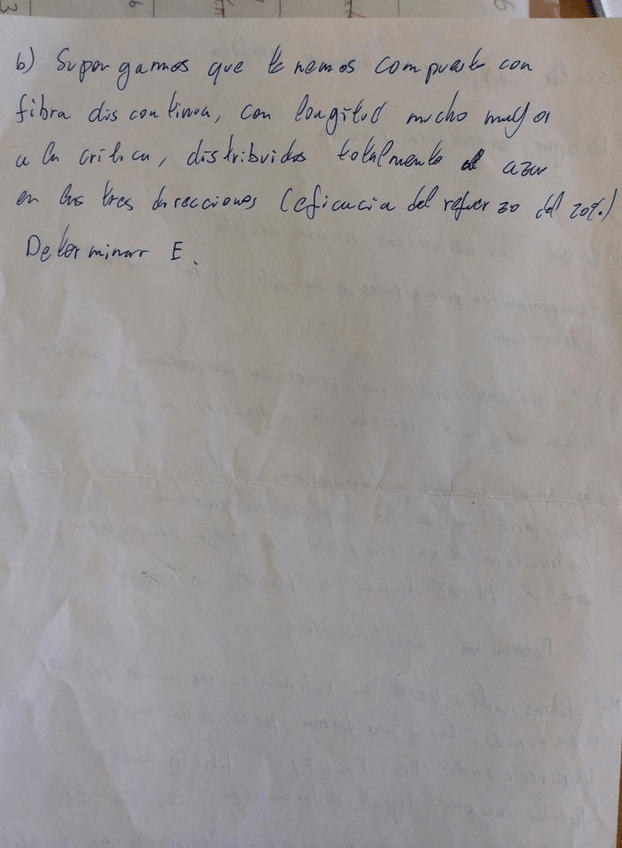 b) Supongamos que tenemos compuesto con
fibra discontinua, con longitud mucho mayor
a la crítica, distribuidos totalmente al azar
en las tres direcciones (eficacia del refuerzo del 20%)
Determinar E.